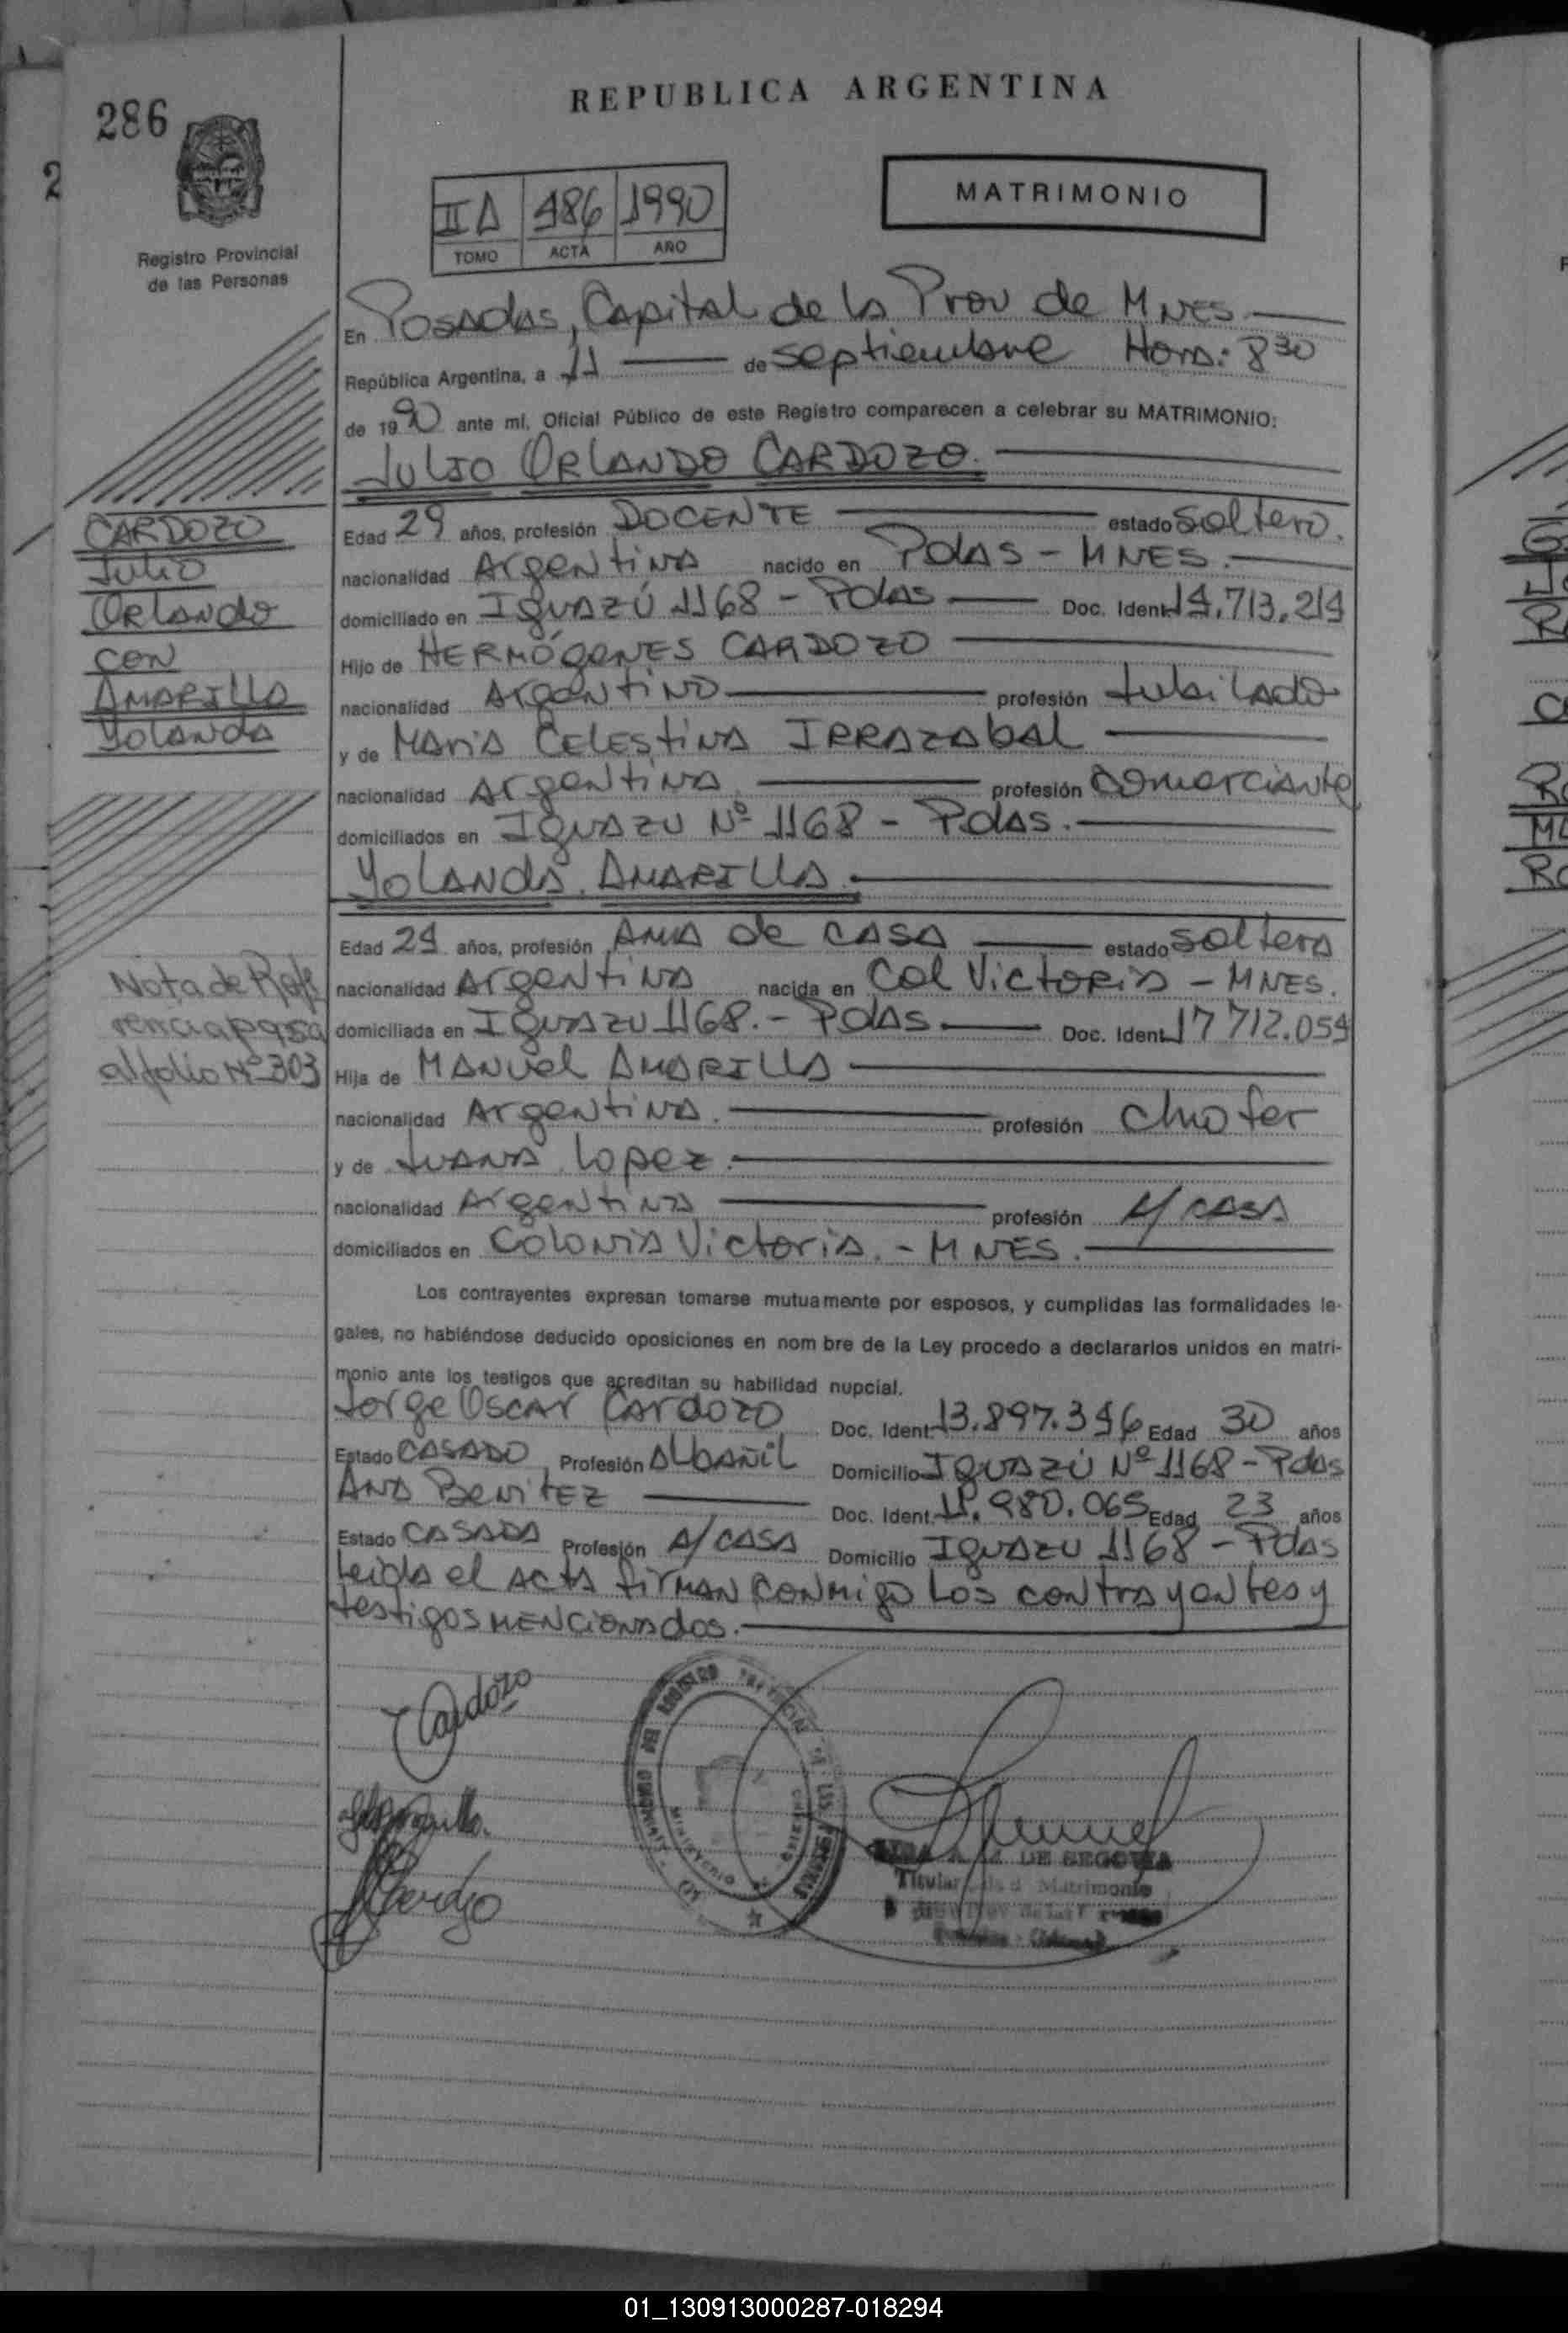 286
REPUBLICA ARGENTINA
MATRIMONIO
IIA 486 1990
TOMO ACTA AÑO
Registro Provincial
de las Personas
En Posadas, Capital de la Prov de MNES.
República Argentina, a 11 de septiembre Hora: 8 30
de 1990 ante mí, Oficial Público de este Registro comparecen a celebrar su MATRIMONIO:
Julio ORLANDO CARDOZO.
CARDOZO
Julio
Orlando
con
AMARILLA
Yolanda
Edad 29 años, profesión DOCENTE estado soltero.
nacionalidad Argentina nacido en Pdas - MNES.
domiciliado en Iguazú 1168 - Pdas Doc. Ident. 14.713.214
Hijo de HERMÓGENES CARDOZO
nacionalidad Argentino profesión Jubilado
y de Maria CELESTINA IRRAZABAL
nacionalidad Argentina profesión comerciante
domiciliados en Iguazu Nº 1168 - Pdas.
Yolanda AMARILLA.
Edad 24 años, profesión AMA de CASA estado soltera
nacionalidad Argentina nacida en Col Victoria - MNES.
domiciliada en Iguazu 1168. - Pdas Doc. Ident. 17 712.054
Hija de MANUEL AMARILLA
nacionalidad Argentina. profesión chofer
y de JUANA Lopez.
nacionalidad Argentina profesión A/ CASA
domiciliados en Colonia Victoria. - MNES.
Nota de Refe
rencia pasa
al folio Nº 303
Los contrayentes expresan tomarse mutuamente por esposos, y cumplidas las formalidades le-
gales, no habiéndose deducido oposiciones en nom bre de la Ley procedo a declararlos unidos en matri-
monio ante los testigos que acreditan su habilidad nupcial.
Jorge Oscar Cardozo Doc. Ident. 13.897.346 Edad 30 años
Estado CASADO Profesión Albañil Domicilio Iguazú Nº 1168 - Pdas
Ana Benitez Doc. Ident. 18.980.065 Edad 23 años
Estado CASADA Profesión A/ CASA Domicilio Iguazu 1168 - Pdas
Leida el acta firman conmigo los contrayentes y
testigos mencionados.
Cardozo
DE SEGOVIA
Titular Matrimonio
01_130913000287-018294